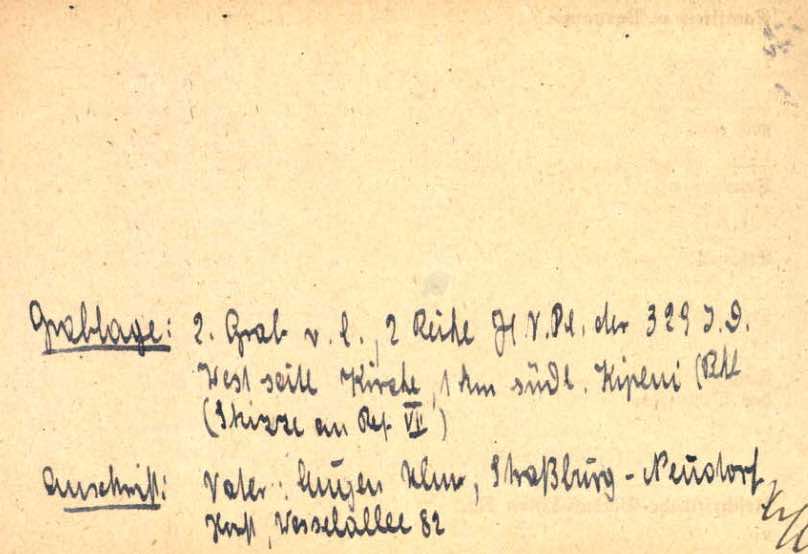 Grablage: 2. Grab v. l., 2 Reihe H.V.Pl. der 329 J.D.
West seite Kirche, 1 km südl. Kipeni (RKK
(Skizze an Ref. VII)
Anschrift: Vater: Eugen, Straßburg - Neudorf,
Horst, Wesselallee 82